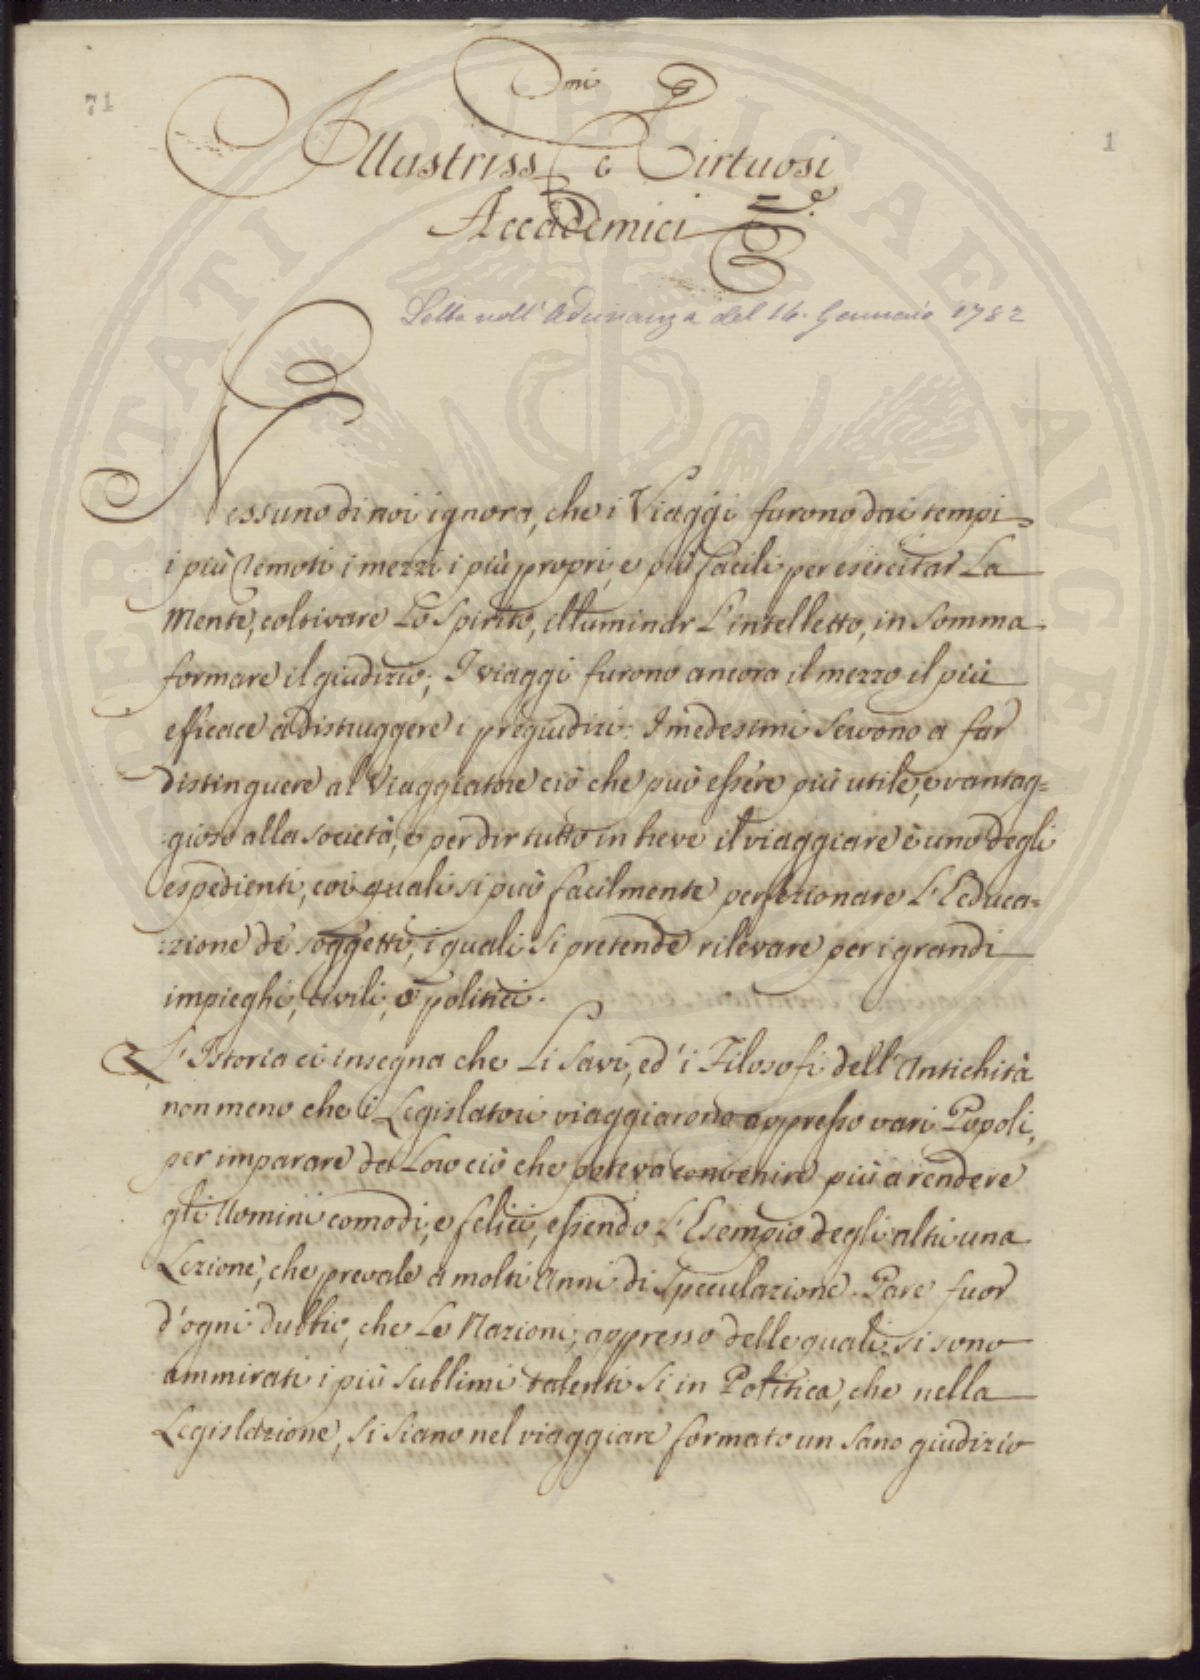 71
1
Illustriss.mi e Virtuosi
Accademici
Letta nell'Adunanza del 16. Gennaio 1782
Nessuno di noi ignora, che i Viaggi furono dai tempi
i più remoti i mezzi i più propri, e più facili per esercitar La
Mente, coltivare Lo Spirito, illuminar L'intelletto, in somma
formare il giudizio; I viaggi furono ancora il mezzo il più
efficace a distruggere i pregiudizi: I medesimi servono a far
distinguere al Viaggiatore ciò che può essere più utile, e vantag=
gioso alla società, e per dir tutto in breve il viaggiare è uno degli
espedienti, coi quali si può facilmente perfezionare L'Educa=
:zione de' soggetti, i quali si pretende rilevare per i grandi
impieghi, civili, o politici.
L'Istoria ci insegna che Li Savi, ed' i Filosofi dell'Antichità
non meno che i Legislatori viaggiarono appresso vari Popoli,
per imparare da Loro ciò che poteva convenire più a rendere
gli Uomini comodi, e felici, essendo L'Esempio degli altri una
Lezione, che prevale a molti Anni di Speculazione. Pare fuor
d'ogni dubbio, che Le Nazioni, appresso delle quali, si sono
ammirati i più sublimi talenti si in Politica, che nella
Legislazione, si siano nel viaggiare formato un sano giudizio
LIBERTATI PUBLICAE AUGEN